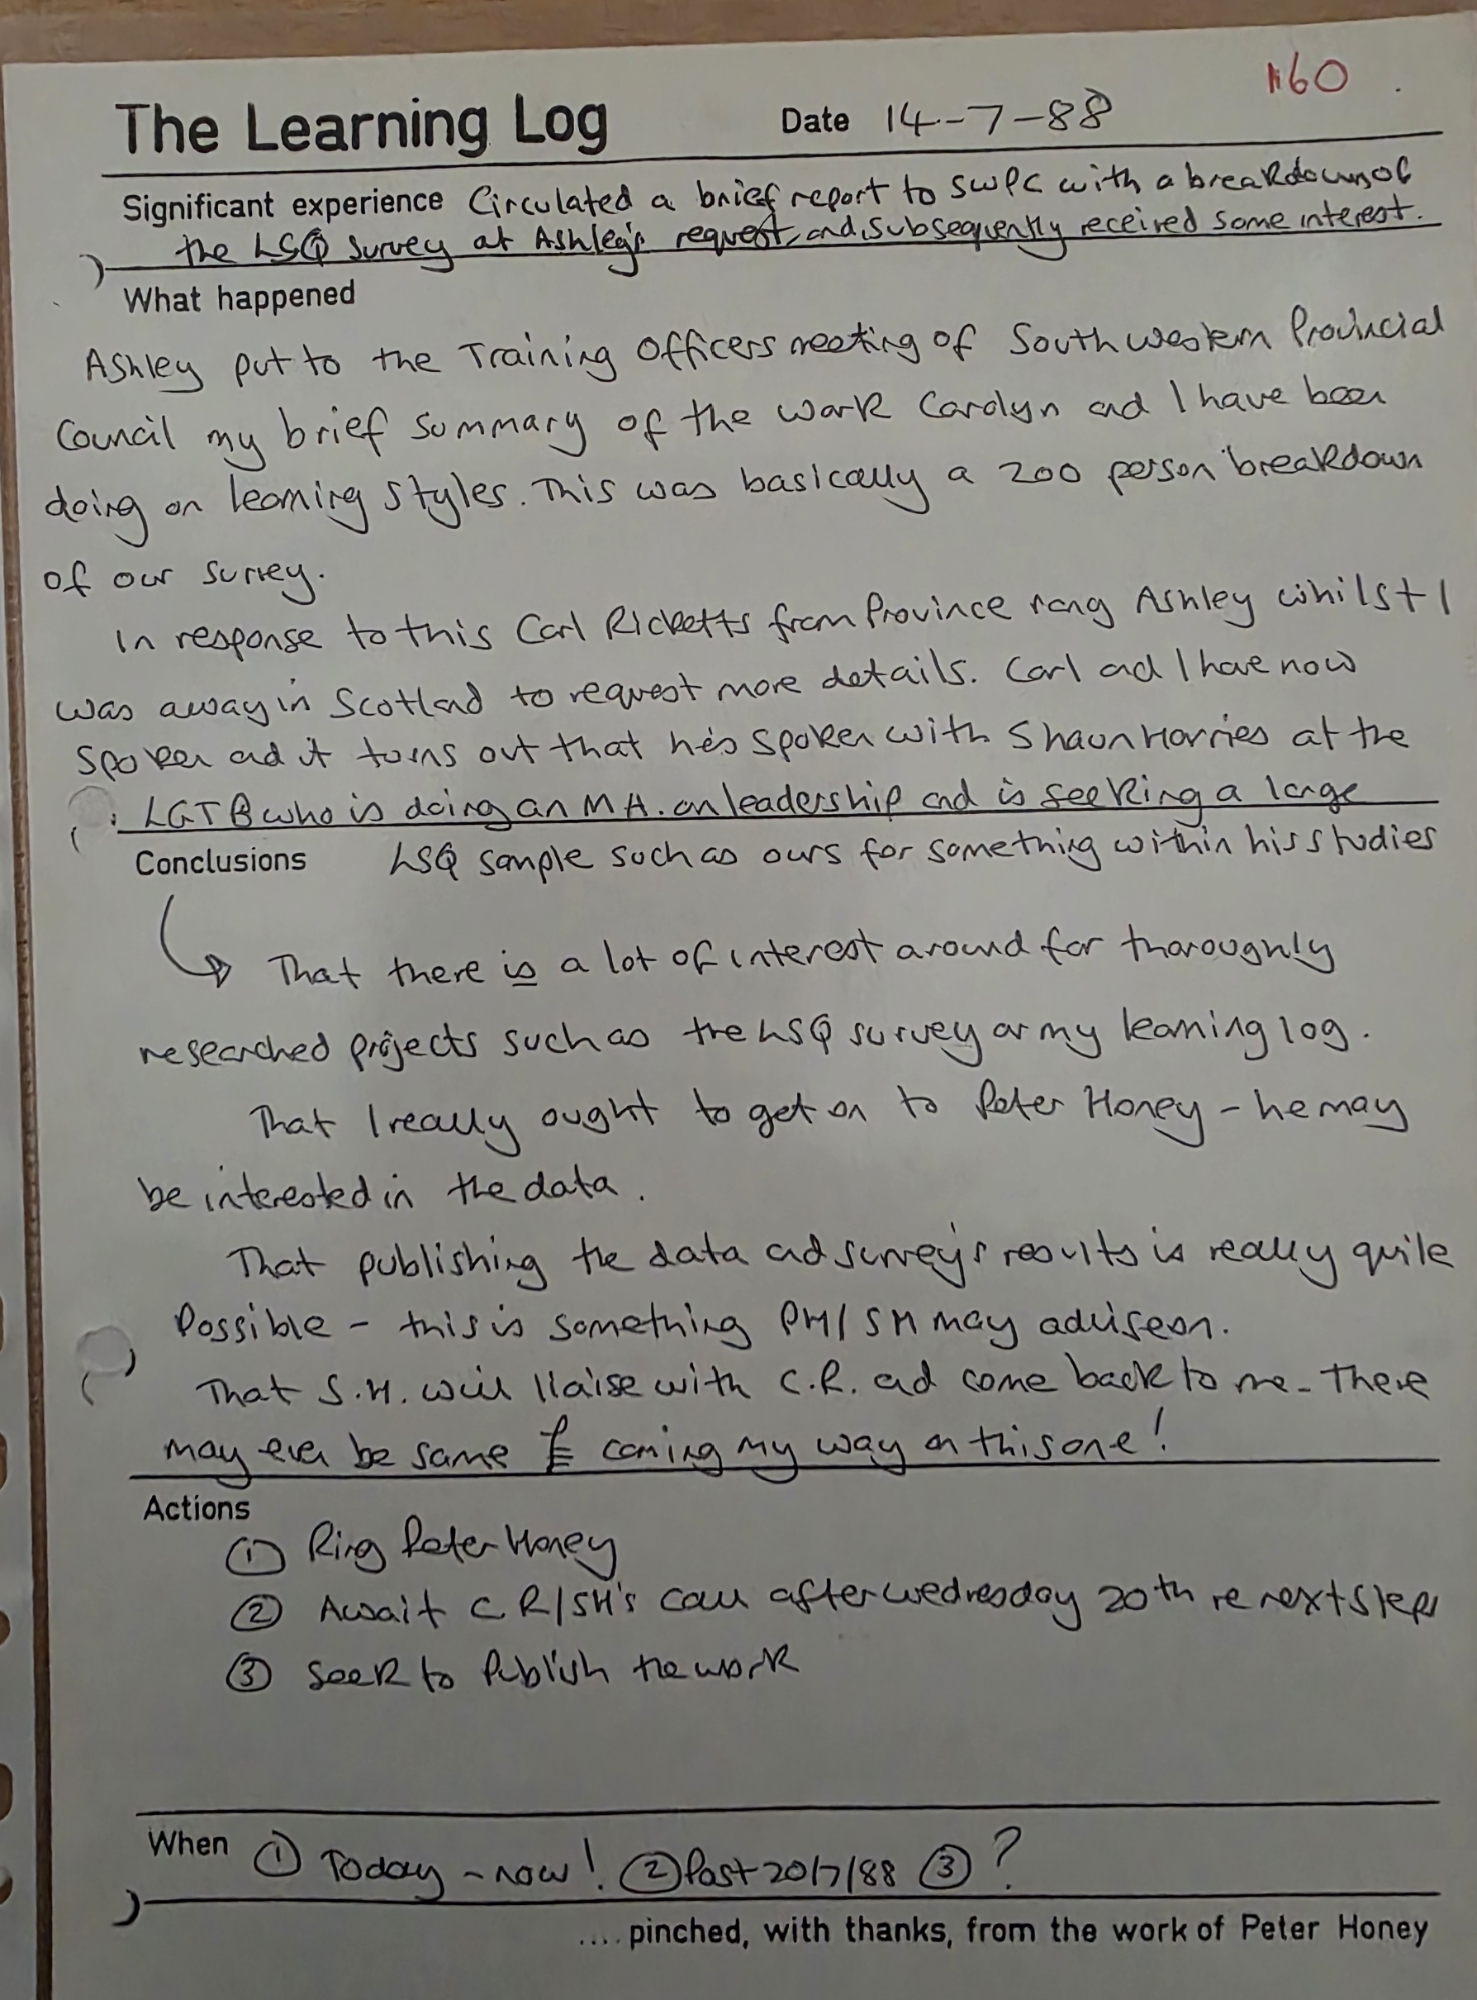 1160
The Learning Log Date 14-7-88
Significant experience Circulated a brief report to SWPC with a breakdown of
the LSQ survey at Ashley's request, and subsequently received some interest.
What happened
Ashley put to the Training Officers meeting of South Western Provincial
Council my brief summary of the work Carolyn and I have been
doing on learning styles. This was basically a 200 person breakdown
of our survey.
In response to this Carl Ricketts from Province rang Ashley whilst I
was away in Scotland to request more details. Carl and I have now
spoken and it turns out that he's spoken with Shaun Horries at the
LGTB who is doing an M.A. on leadership and is seeking a large
Conclusions LSQ sample such as ours for something within his studies
That there is a lot of interest around for thoroughly
researched projects such as the LSQ survey or my learning log.
That I really ought to get on to Peter Honey - he may
be interested in the data.
That publishing the data and survey's results is really quite
possible - this is something PH/SH may advise on.
That S.H. will liaise with C.R. and come back to me. There
may even be some £ coming my way on this one!
Actions
① Ring Peter Honey
② Await CR/SH's call after Wednesday 20th re next steps
③ Seek to publish the work
When ① Today - now! ② Post 20/7/88 ③ ?
.... pinched, with thanks, from the work of Peter Honey